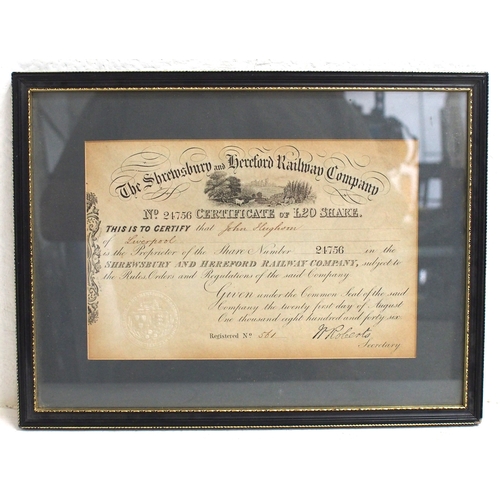 The Shrewsbury and Hereford Railway Company
No 24756 CERTIFICATE OF £20 SHARE.
THIS IS TO CERTIFY that John
of Liverpool
is the Proprietor of the Share Number 24756 in the
SHREWSBURY AND HEREFORD RAILWAY COMPANY, subject to
the Rules, Orders and Regulations of the said Company
Given under the Common Seal of the said
Company the twenty first day of August
One thousand eight hundred and forty six
Registered No 561
W Roberts
Secretary